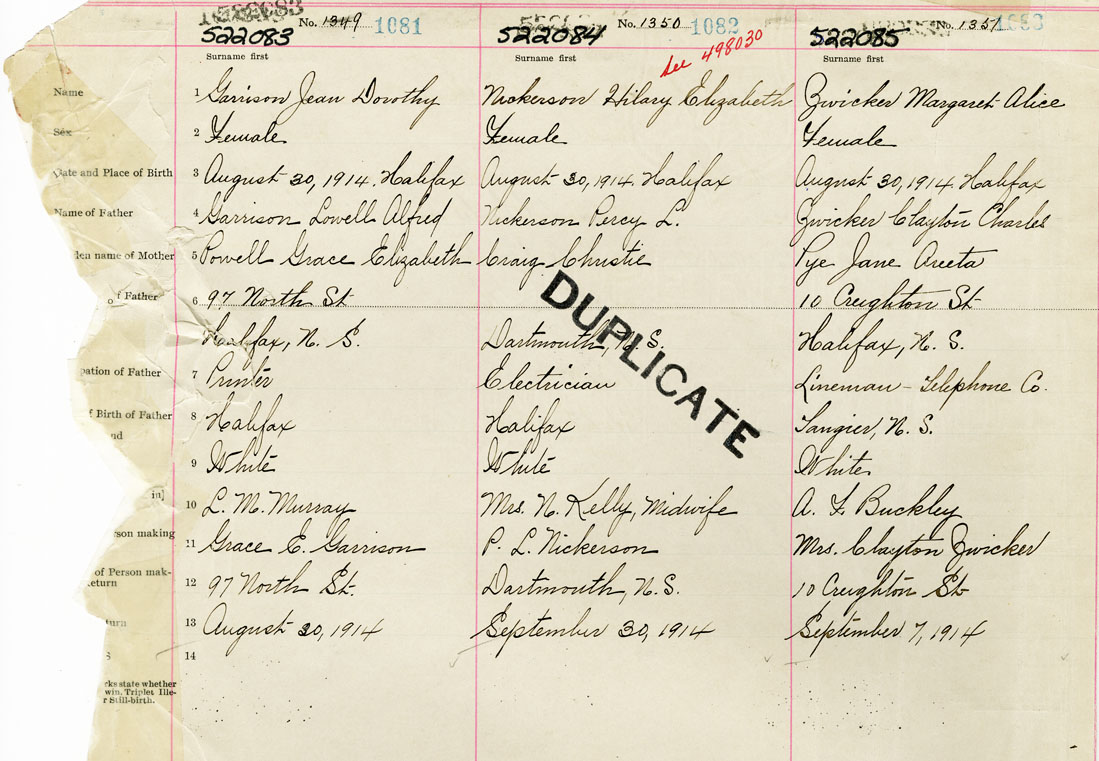 No. 1349 1081 No. 1350 1082 No. 1351
522083 522084 522085
See 498030
Surname first Surname first Surname first
Name 1 Garrison Jean Dorothy Nickerson Hilary Elizabeth Zwicker Margaret Alice
Sex 2 Female Female Female
Date and Place of Birth 3 August 30, 1914. Halifax August 30, 1914, Halifax August 30, 1914 Halifax
Name of Father 4 Garrison Lowell Alfred Nickerson Percy L. Zwicker Clayton Charles
den name of Mother 5 Powell Grace Elizabeth Craig Christie Pye Jane Areeta
of Father 6 97 North St 10 Creighton St
Halifax, N. S. Dartmouth, N. S. Halifax, N. S.
DUPLICATE
pation of Father 7 Printer Electrician Lineman - Telephone Co.
f Birth of Father 8 Halifax Halifax Tangier, N. S.
nd
9 White White White
in]
10 L. M. Murray Mrs. N. Kelly, Midwife A. F. Buckley
rson making
11 Grace E. Garrison P. L. Nickerson Mrs. Clayton Zwicker
of Person mak-
eturn
12 97 North St. Dartmouth, N. S. 10 Creighton St
turn
13 August 30, 1914 September 30, 1914 September 7, 1914
14
rks state whether
win, Triplet Ille-
r Still-birth.